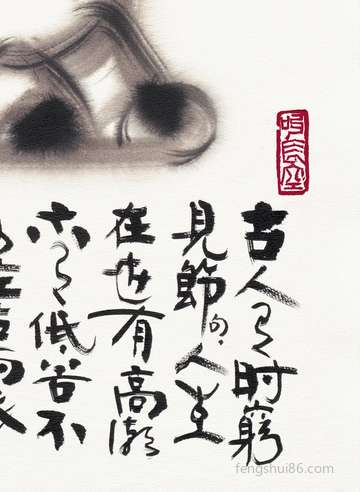 古人有时窮
見節句人生
在世有高潮
亦有低谷不
fengshui86.com